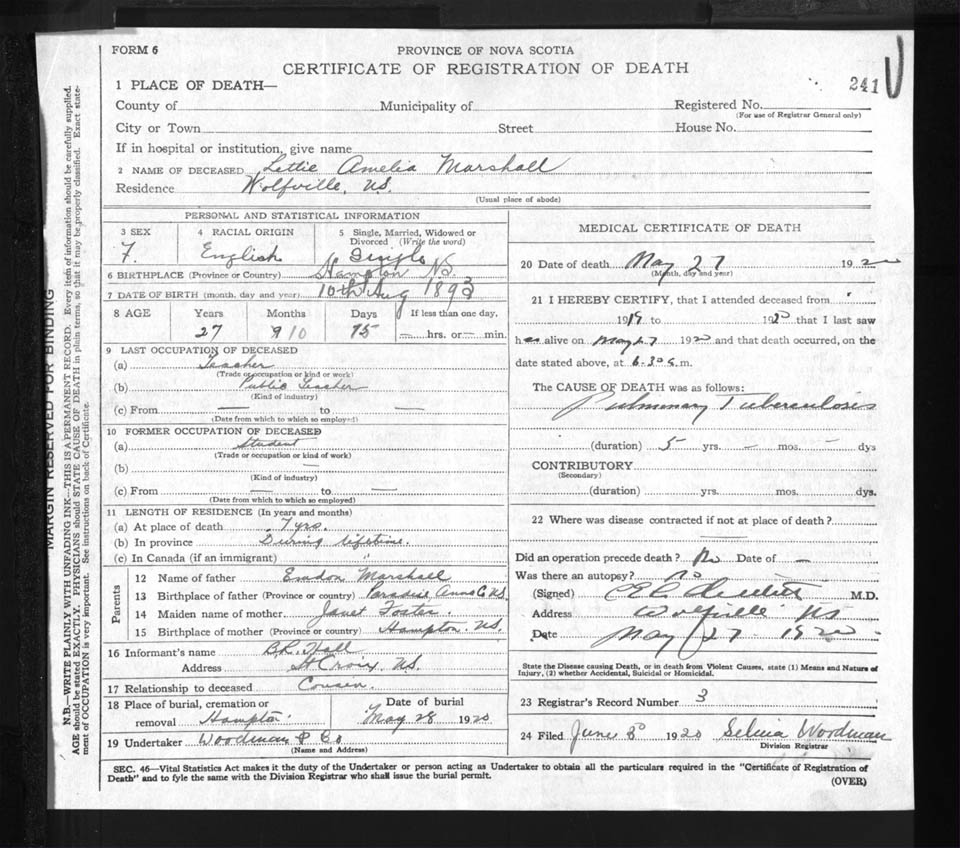 FORM 6
PROVINCE OF NOVA SCOTIA
CERTIFICATE OF REGISTRATION OF DEATH
241
1 PLACE OF DEATH—
County of Municipality of Registered No.
(For use of Registrar General only)
City or Town Street House No.
If in hospital or institution, give name
2 NAME OF DECEASED Lettie Amelia Marshall
Residence Wolfville, N.S.
(Usual place of abode)
PERSONAL AND STATISTICAL INFORMATION
3 SEX 4 RACIAL ORIGIN 5 Single, Married, Widowed or Divorced (Write the word)
F. English Single
6 BIRTHPLACE (Province or Country) Hampton N.S.
7 DATE OF BIRTH (month, day and year) 10th Aug 1893
8 AGE Years Months Days If less than one day,
27 9 10 15 hrs. or min.
9 LAST OCCUPATION OF DECEASED
(a) Teacher
(Trade or occupation or kind of work)
(b) Public Teacher
(Kind of industry)
(c) From — to —
(Date from which to which so employed)
10 FORMER OCCUPATION OF DECEASED
(a) Student
(Trade or occupation or kind of work)
(b) —
(Kind of industry)
(c) From — to —
(Date from which to which so employed)
11 LENGTH OF RESIDENCE (In years and months)
(a) At place of death 7 yrs.
(b) In province During lifetime.
(c) In Canada (if an immigrant) "
Parents
12 Name of father Marshall
13 Birthplace of father (Province or country) Paradise Anna Co N.S.
14 Maiden name of mother Janet Foster.
15 Birthplace of mother (Province or country) Hampton. N.S.
16 Informant's name B.R. Hall
Address St Croix, N.S.
17 Relationship to deceased Cousen.
18 Place of burial, cremation or removal Hampton. Date of burial May 28 1920
19 Undertaker Woodman & Co
(Name and Address)
MEDICAL CERTIFICATE OF DEATH
20 Date of death May 27 1920
(Month, day and year)
21 I HEREBY CERTIFY, that I attended deceased from
1919 to 1920 that I last saw
h er alive on May 27 1920 and that death occurred, on the
date stated above, at 6.30 a.m.
The CAUSE OF DEATH was as follows:
Pulmonary Tuberculosis
(duration) 5 yrs. — mos. — dys
CONTRIBUTORY
(Secondary)
(duration) yrs. mos. dys.
22 Where was disease contracted if not at place of death?
Did an operation precede death? No Date of —
Was there an autopsy? no
(Signed) M.D.
Address Wolfville NS
Date May 27 1920
State the Disease causing Death, or in death from Violent Causes, state (1) Means and Nature of Injury, (2) whether Accidental, Suicidal or Homicidal.
23 Registrar's Record Number 3
24 Filed June 8 1920 Selina Woodman
Division Registrar
SEC. 46—Vital Statistics Act makes it the duty of the Undertaker or person acting as Undertaker to obtain all the particulars required in the "Certificate of Registration of
Death" and to fyle the same with the Division Registrar who shall issue the burial permit.
(OVER)
MARGIN RESERVED FOR BINDING
N.B.—WRITE PLAINLY WITH UNFADING INK—THIS IS A PERMANENT RECORD. Every item of information should be carefully supplied.
AGE should be stated EXACTLY. PHYSICIANS should STATE CAUSE OF DEATH in plain terms, so that it may be properly classified. Exact state-
ment of OCCUPATION is very important. See instructions on back of Certificate.